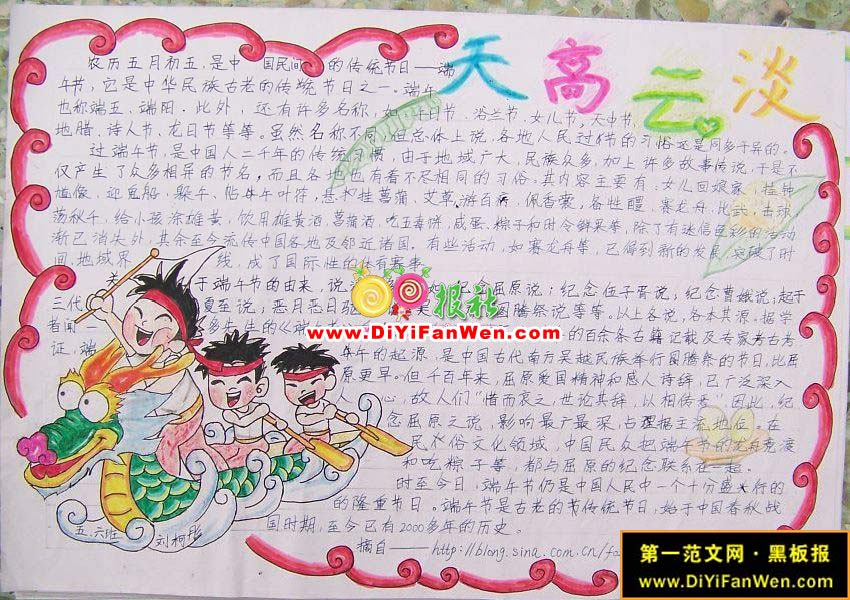 天高云淡
农历五月初五,是中国民间的传统节日——端
午节,它是中华民族古老的传统节日之一。端午
也称端五、端阳。此外,还有许多名称,如:午日节、浴兰节、女儿节,天中节、
地腊、诗人节、龙日节等等。虽然名称不同,但总体上说,各地人民过节的习俗还是同多于异的。
过端午节,是中国人二千年的传统习惯,由于地域广大,民族众多,加上许多故事传说,于是不
仅产生了众多相异的节名,而且各地也有着不尽相同的习俗。其内容主要有:女儿回娘家,挂钟
馗像,迎鬼船、躲午、帖午叶符,悬挂菖蒲、艾草,游百病,佩香囊,备牲醴,赛龙舟,比武,击球
荡秋千,给小孩涂雄黄,饮用雄黄酒、菖蒲酒,吃五毒饼、咸蛋、粽子和时令鲜果等,除了有迷信色彩的活动
渐已消失外,其余至今流传中国各地及邻近诸国。有些活动,如赛龙舟等,已得到新的发展,突破了时
间,地域界线,成了国际性的体育赛事。
关于端午节的由来,说 纪念屈原说;纪念伍子胥说;纪念曹娥说;起于
三代夏至说;恶月恶日驱 图腾祭说等等。以上各说,各本其源。据学
者闻一多先生的《端 的百余条古籍记载及专家考古考
证,端 午的起源,是中国古代南方吴越民族举行图腾祭的节日,比屈
原更早。但千百年来,屈原爱国精神和感人诗辞,已广泛深入
人心,故人们“惜而哀之,世论其辞,以相传焉”因此,纪
念屈原之说,影响最广最深,占据主流地位。在
民俗文化领域,中国民众把端午节的龙舟竞渡
和吃粽子等,都与屈原的纪念联系在一起。
时至今日,端午节仍是中国人民中一个十分盛行的
的隆重节日。端午节是古老的传统节日,始于中国春秋战
国时期,至今已有2000多年的历史。
摘自——http://blong.sina.com.cn/fa
五.六班 刘柯彤
报社
www.DiYiFanWen.com
第一范文网·黑板报
www.DiYiFanWen.com